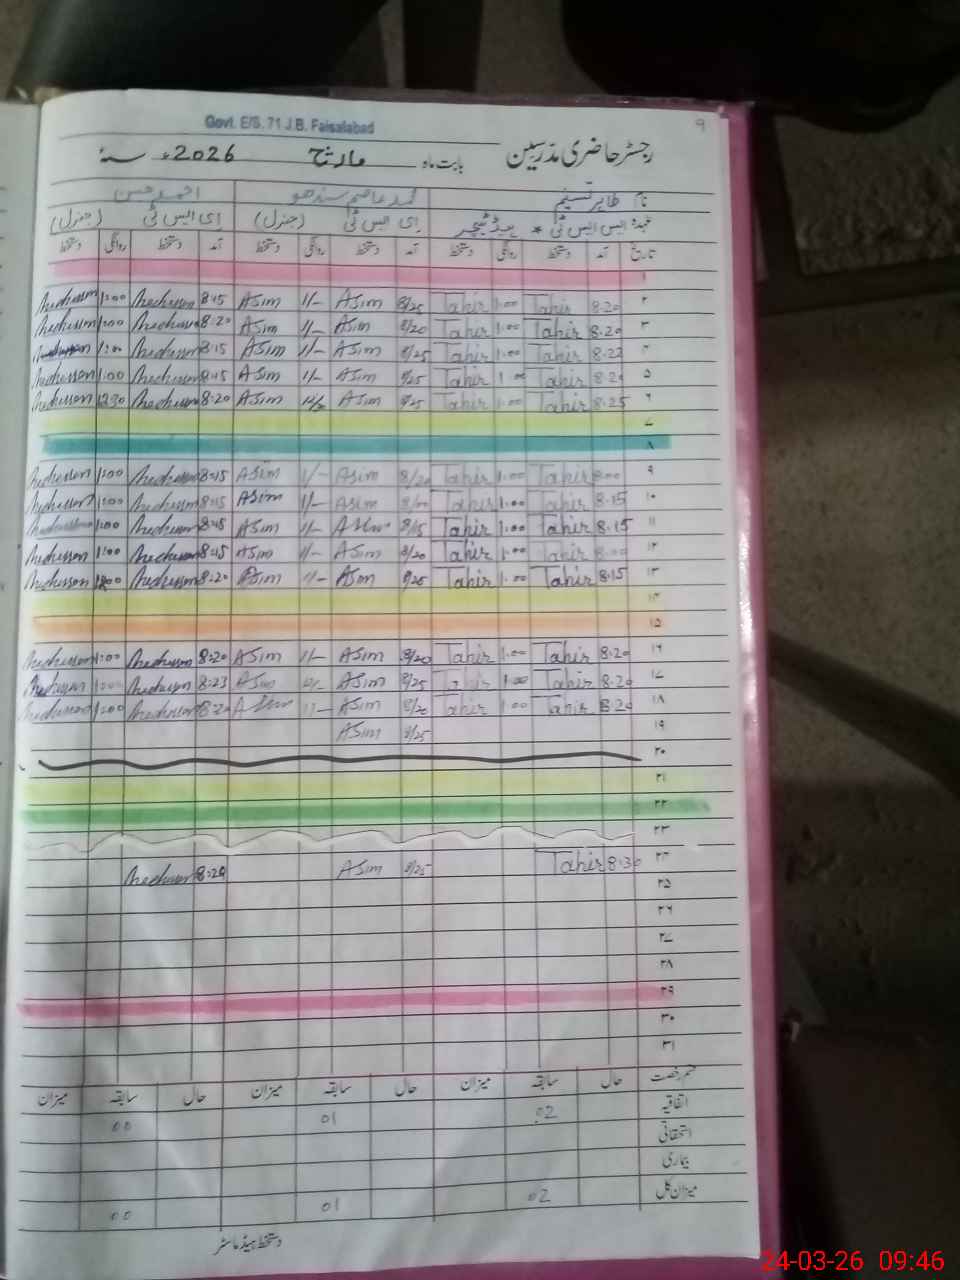 Govt. E/S. 71 J.B. Faisalabad
۹
رجسٹر حاضری مدرسین بابت ماہ مارچ 2026ء سنہ
نام طاہر تسنیم محمد عاصم سندھو احمد حسن
عہدہ ایس ایس ٹی * ہیڈ ٹیچر ای ایس ٹی (جنرل) ای ایس ٹی (جنرل)
تاریخ آمد دستخط روانگی دستخط آمد دستخط روانگی دستخط آمد دستخط روانگی دستخط
۱
۲ 8:20 Tahir 1:00 Tahir 8/25 Asim 1/- Asim 8:15 1:00
۳ 8:20 Tahir 1:00 Tahir 8/20 Asim 1/- Asim 8:20 1:00
۴ 8:22 Tahir 1:00 Tahir 8/25 Asim 1/- Asim 8:15 1:00
۵ 8:20 Tahir 1:00 Tahir 8/25 Asim 1/- Asim 8:15 1:00
۶ 8:25 Tahir 1:00 Tahir 8/25 Asim Asim 8:20 12:30
۷
۸
۹ 8:00 Tahir 1:00 Tahir 8/20 Asim 1/- Asim 8:15 1:00
۱۰ 8:15 Tahir 1:00 Tahir Asim 1/- Asim 8:15 1:00
۱۱ 8:15 Tahir 1:00 Tahir 8/15 Asim 1/- Asim 8:15 1:00
۱۲ 8:00 Tahir 1:00 Tahir 8/20 Asim 1/- Asim 8:15 1:00
۱۳ 8:15 Tahir 1:00 Tahir 8/25 Asim 1/- Asim 8:20
۱۴
۱۵
۱۶ 8:20 Tahir 1:00 Tahir 8/20 Asim 1/- Asim 8:20 1:00
۱۷ 8:20 Tahir 1:00 Tahir 8/25 Asim Asim 8:23 1:00
۱۸ 8:20 Tahir 1:00 Tahir 8/20 Asim 1/- Asim 8:20 1:00
۱۹ 8/25 Asim
۲۰
۲۱
۲۲
۲۳
۲۴ 8:30 Tahir 8/25 Asim 8:20
۲۵
۲۶
۲۷
۲۸
۲۹
۳۰
۳۱
قسم رخصت حال سابقہ میزان حال سابقہ میزان حال سابقہ میزان
اتفاقیہ 02 01 00
استحقاقی
بیماری
میزان کل 02 01 00
دستخط ہیڈ ماسٹر
24-03-26 09:46